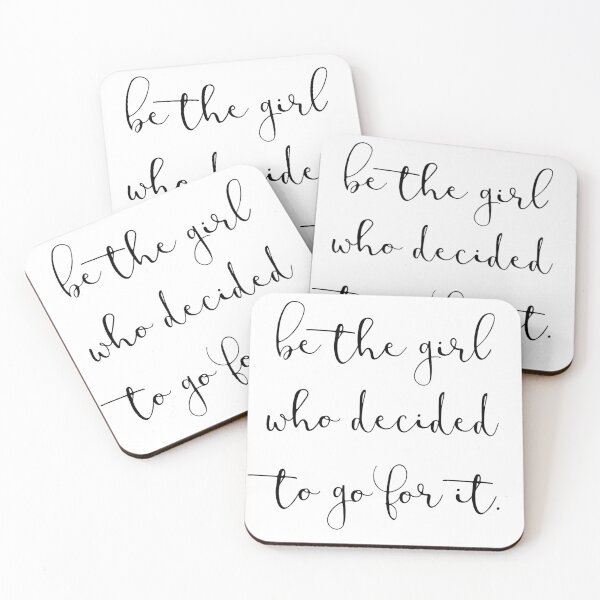 be the girl
who decide
be the girl
who decided
to go for it.
be the girl
who decided
to go fo
be the girl
who decided
to go for it.